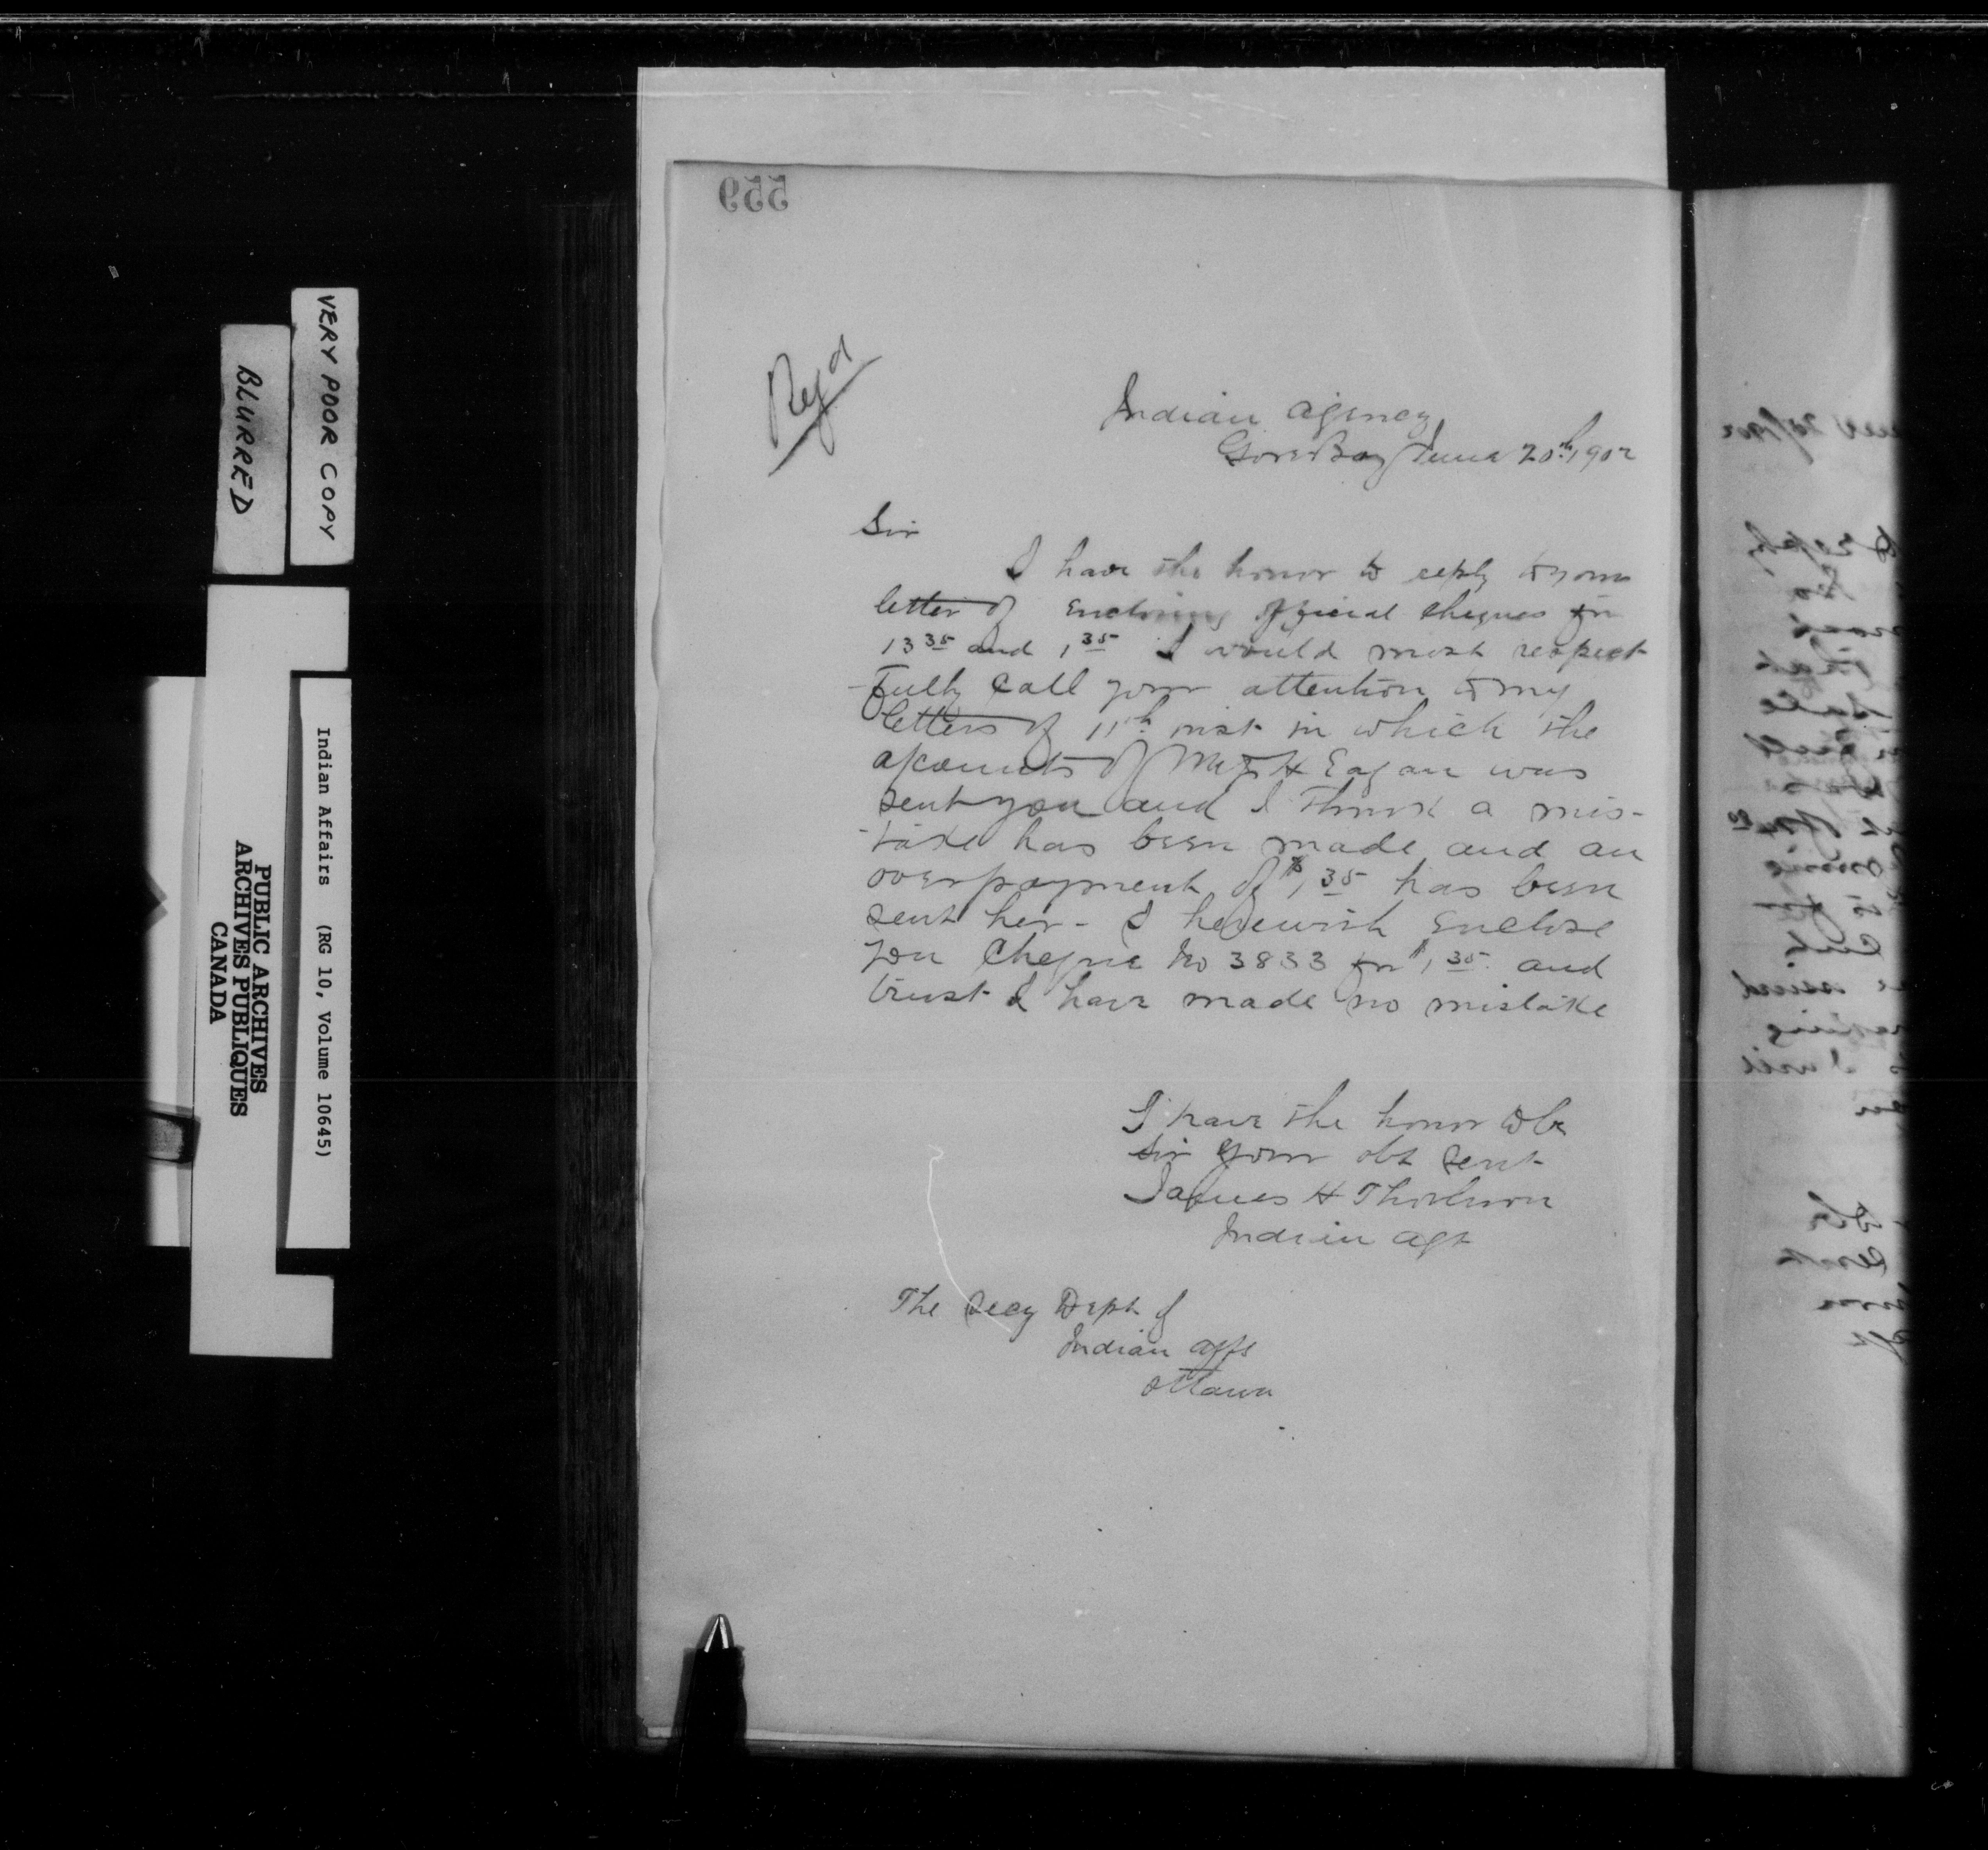 559
Regd
Indian Agency
Gore Bay June 20th 1902
Sir
I have the honor to reply to your
letter of enclosing official cheques for
13 35 and 1 35 I would most respect
-fully call your attention to my
letters of 11th inst in which the
accounts of Mrs H Eagan was
sent you and I think a mis-
-take has been made and an
overpayment of $1 35 has been
sent her - I herewith Enclose
you Cheque No 3833 for $1 35 and
trust I have made no mistake
I have the honor to be
Sir your obt Servt
James H Thorburn
Indian Agt
The Secy Dept of
Indian Affs
Ottawa
VERY POOR COPY
BLURRED
Indian Affairs (RG 10, Volume 10645)
PUBLIC ARCHIVES
ARCHIVES PUBLIQUES
CANADA